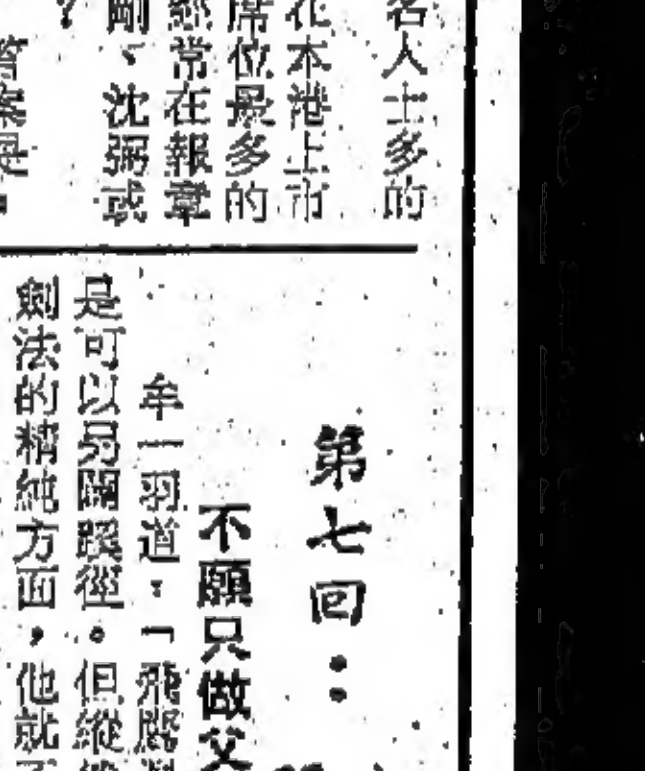 名人士多的
花本港上市
席位最多的
經常在報章
剛、沈弼或
?
答案是
第七回:
不願只做父
牟一羽道:「飛鷹
是可以另闢蹊徑。但縱
劍法的精純方面,他就